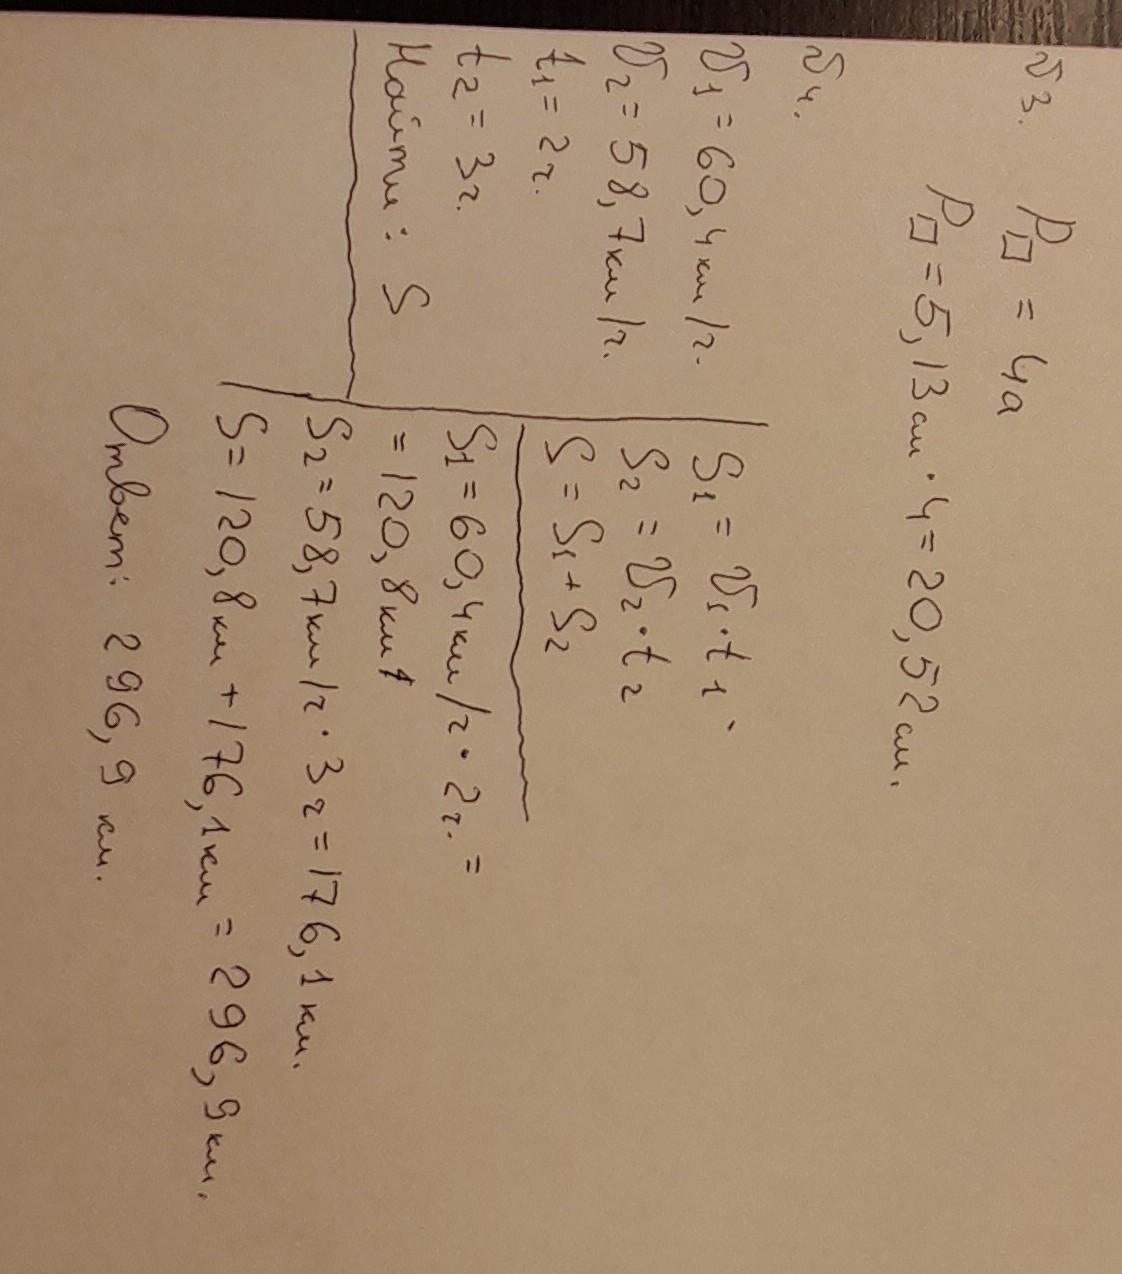 №3.
P□ = 4a
P□ = 5,13 см · 4 = 20,52 см.
№4.
V₁ = 60,4 км/ч.
V₂ = 58,7 км/ч.
t₁ = 2 ч.
t₂ = 3 ч.
Найти: S
S₁ = V₁ · t₁
S₂ = V₂ · t₂
S = S₁ + S₂
S₁ = 60,4 км/ч · 2 ч. =
= 120,8 км
S₂ = 58,7 км/ч · 3 ч = 176,1 км.
S = 120,8 км + 176,1 км = 296,9 км.
Ответ: 296,9 км.